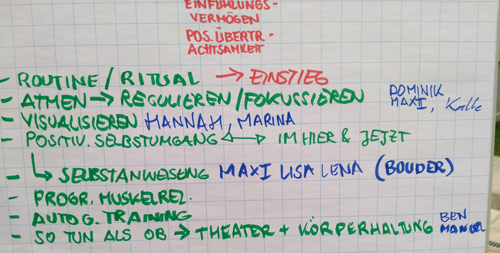 EINFÜHLUNGS-
VERMÖGEN
POS. ÜBERTR-
ACHTSAMKEIT
- ROUTINE / RITUAL → EINSTIEG
- ATMEN → REGULIEREN / FOKUSSIEREN DOMINIK
MAXI, Kalle
- VISUALISIEREN HANNAH, MARINA
- POSITIV. SELBSTUMGANG ↔ IM HIER & JETZT
↳ SELBSTANWEISUNG MAXI LISA LENA (BOUDER)
- PROGR. MUSKELREL.
- AUTOG. TRAINING
- SO TUN ALS OB → THEATER + KÖRPERHALTUNG BEN